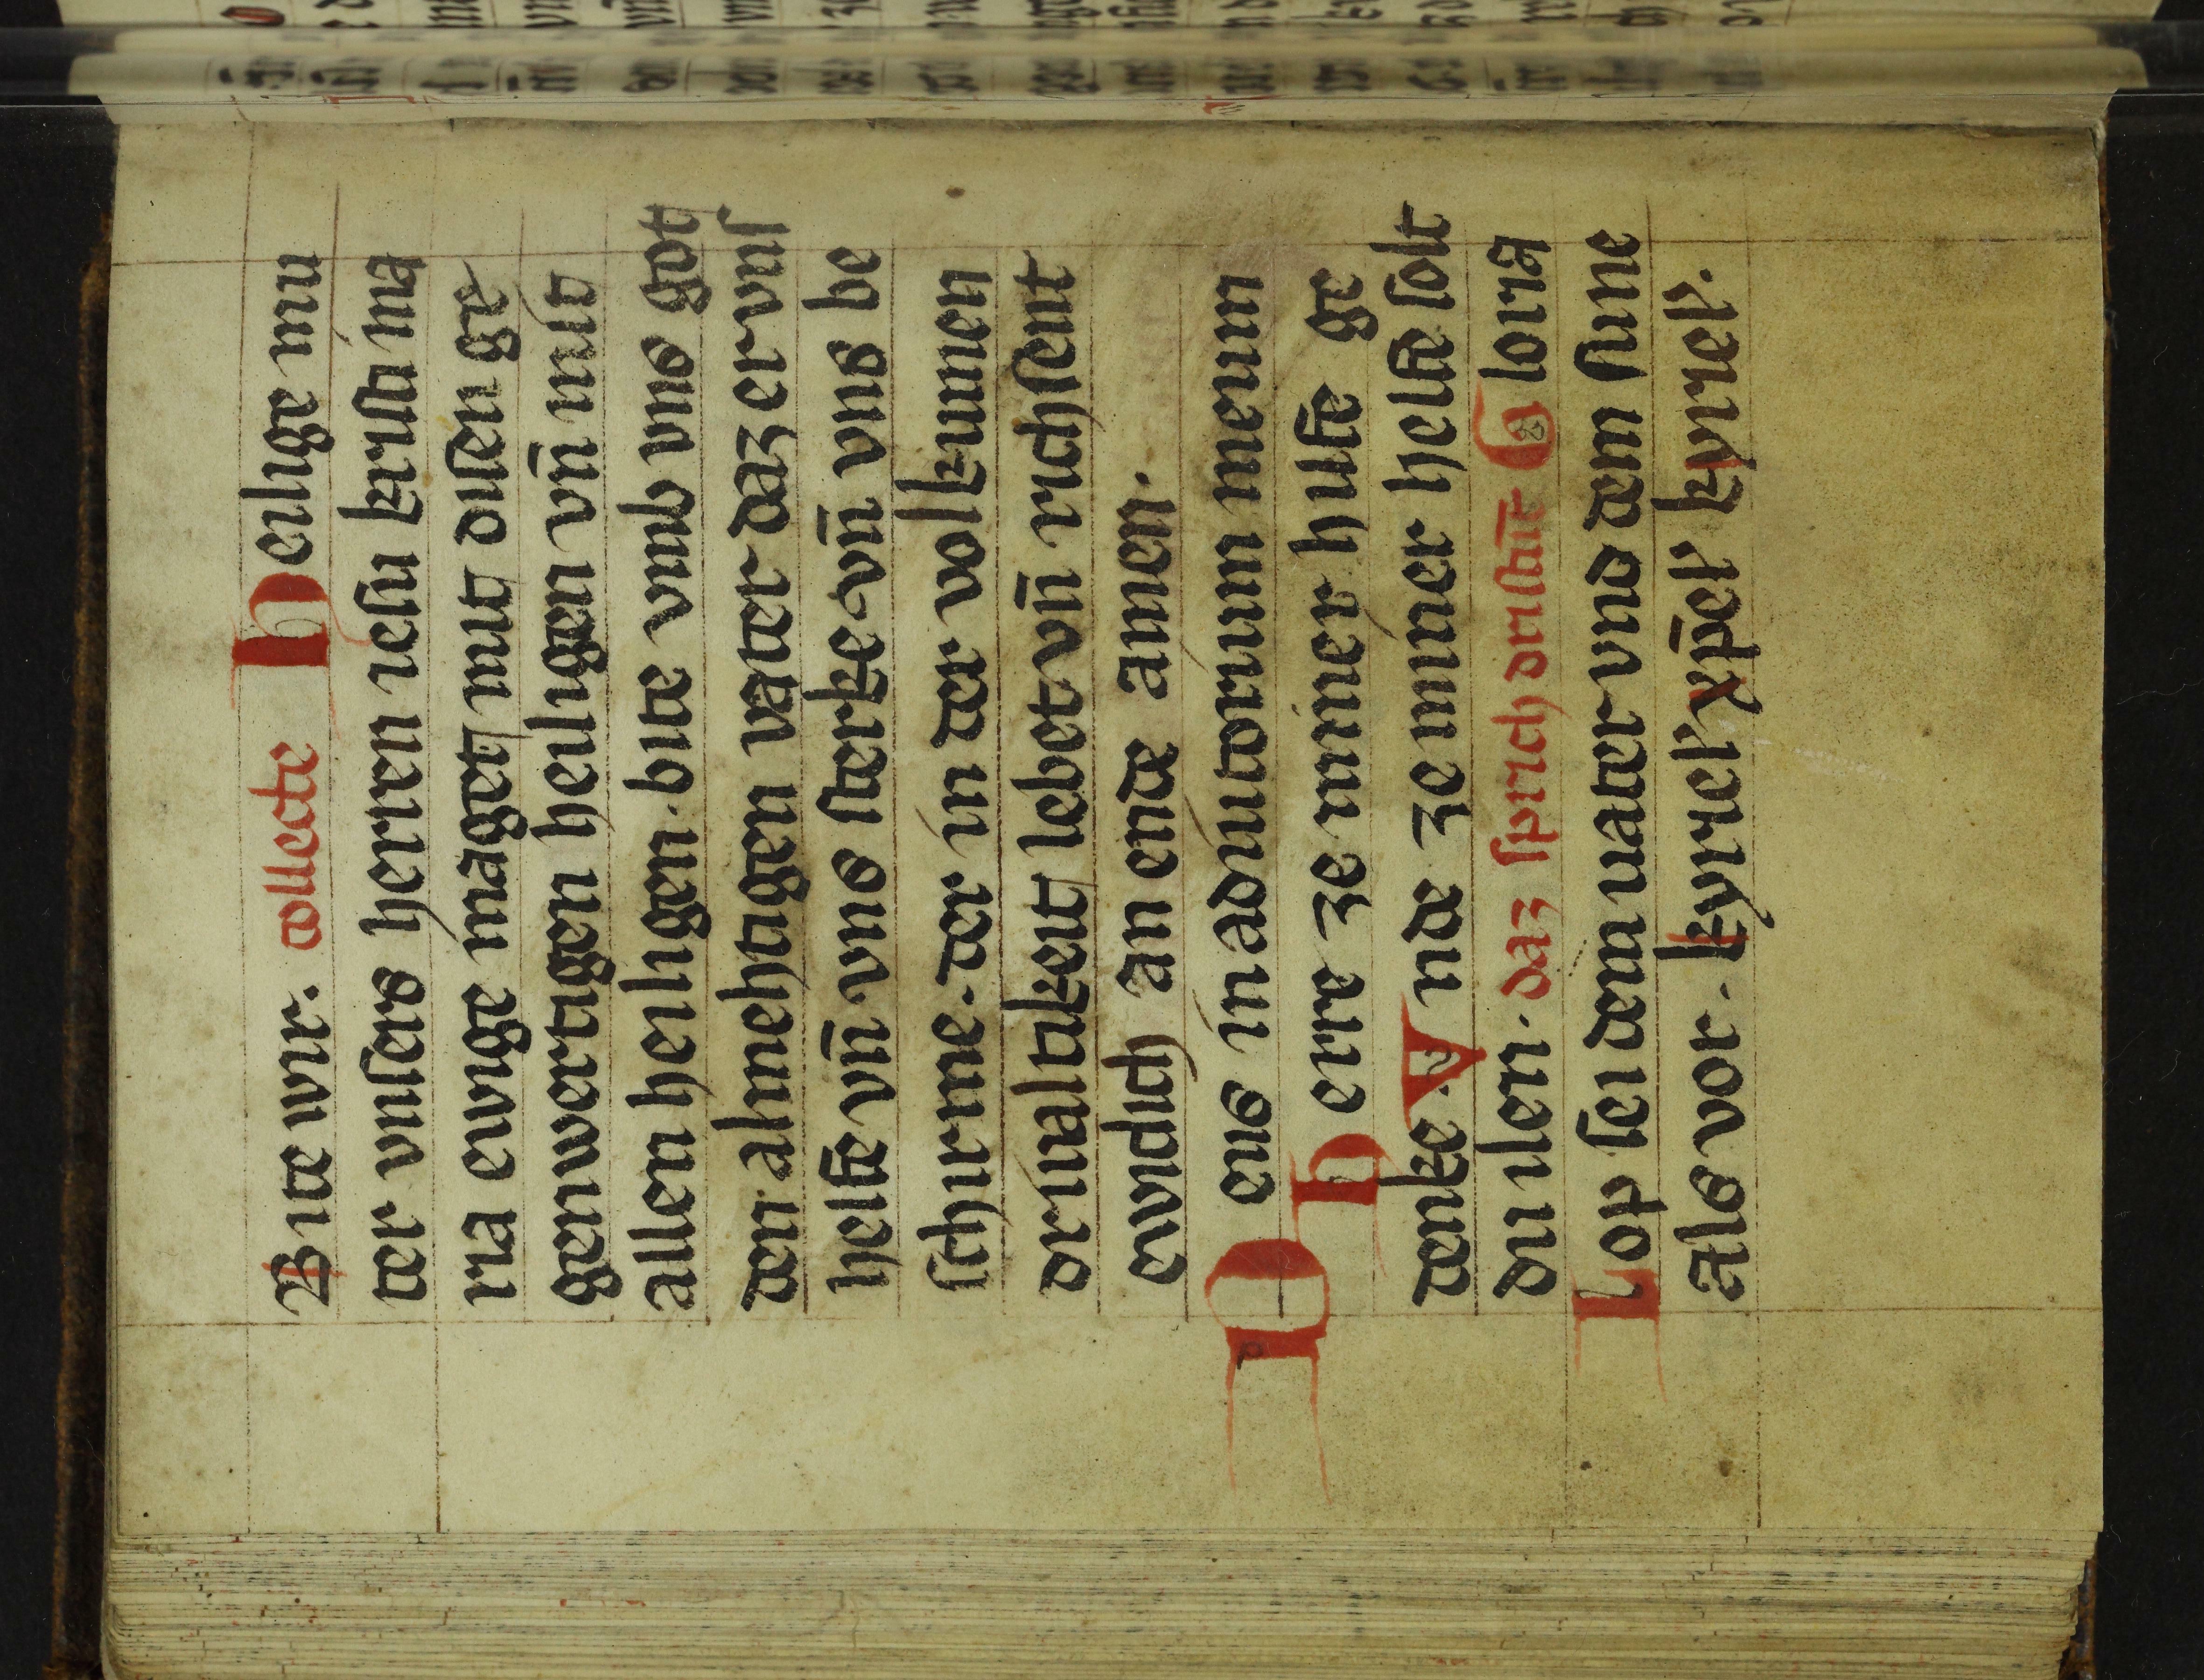 Bite wir. collecte Heilige mu
ter vnsers herren iesu kristi ma
ria ewige maget mit disen ge
genwertigen heiligen vn̄ mit
allen heiligen. bite vmb vns got
den almehtigen vater daz er vns
helfe vn̄ vns sterke vn̄ vns be
schirme. der in der volkumen
drinaltikeit lebet vn̄ richsent
ewiclich an ende amen.
Deus in adiutorium meum
Herre ze miner hilfe ge
denke. Vnde ze miner helfe solt
du ilen. daz sprich dristūt Gloria
Lop sei dem uater vnd dem sune
Als vor. kyriel' xp̄el' kyriel'.